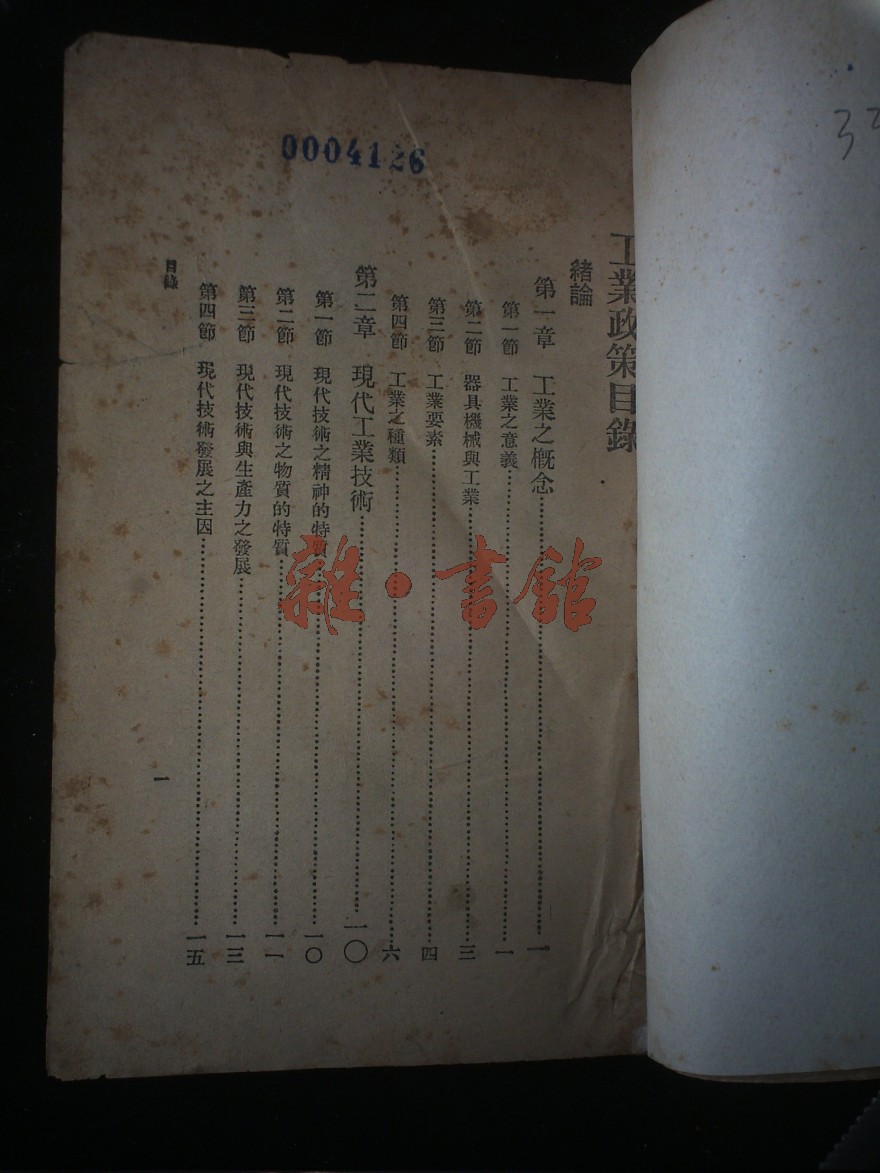 0004126
工業政策目錄
緒論
第一章 工業之概念 一
第一節 工業之意義 一
第二節 器具機械與工業 三
第三節 工業要素 四
第四節 工業之種類 六
第二章 現代工業技術 一〇
第一節 現代技術之精神的特質 一〇
第二節 現代技術之物質的特質 一一
第三節 現代技術與生產力之發展 一三
第四節 現代技術發展之主因 一五
目錄
一
雜·書館